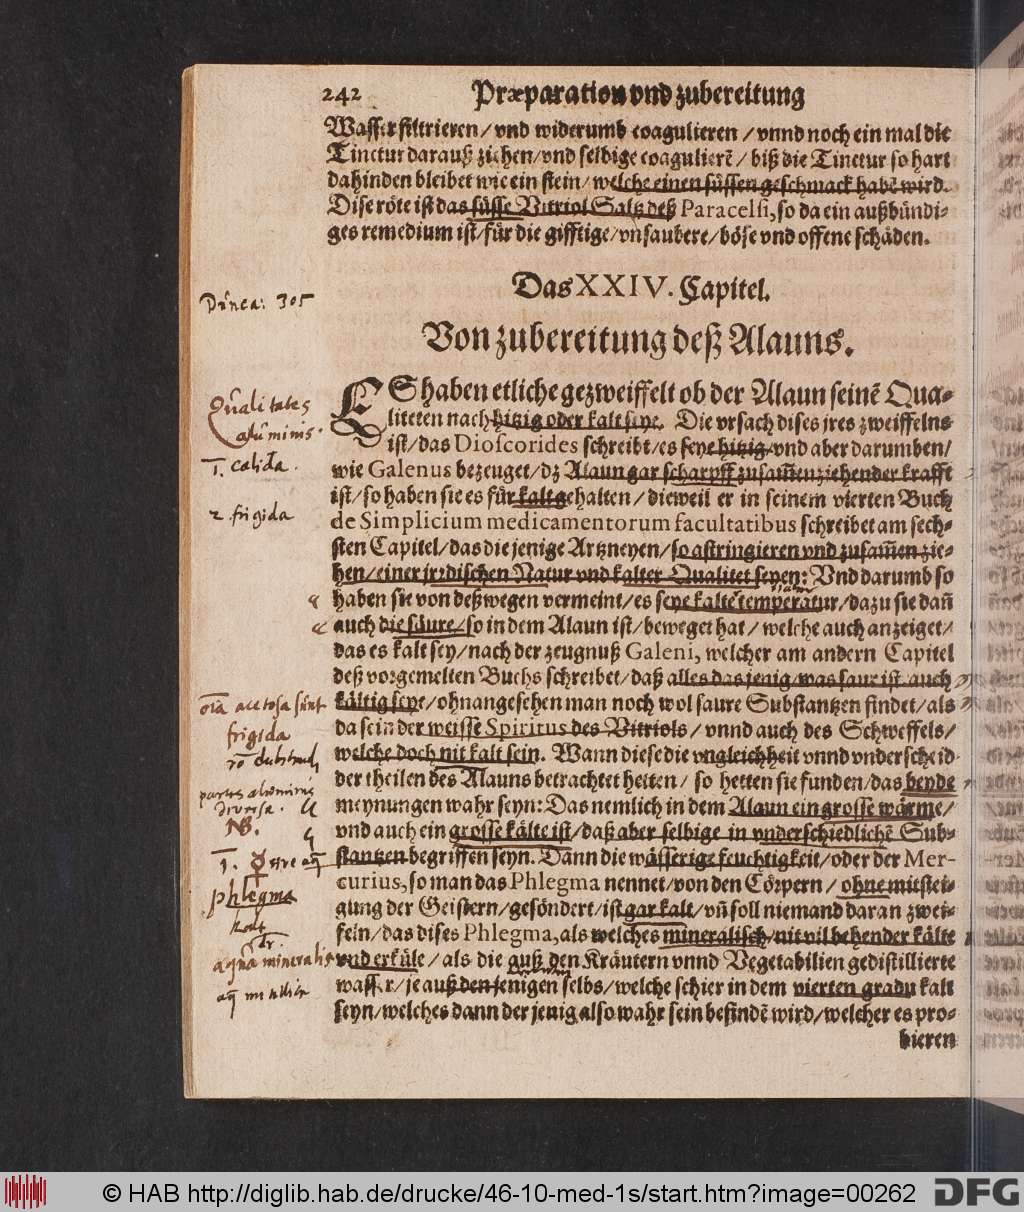 242 Præparation vnd zubereitung
Wasser filtrieren/ vnd widerumb coagulieren / vnnd noch ein mal die
Tinctur darauß ziehen/ vnd selbige coagulierē / biß die Tinctur so hart
dahinden bleibet wie ein stein/ welche einen süssen geschmack habē wird.
Dise röte ist das süsse Vitriol Saltz deß Paracelsi, so da ein außbündi-
ges remedium ist/ für die gifftige/ vnsaubere/ böse vnd offene schäden.
Das XXIV. Capitel.
Pinea: 305
Von zubereitung deß Alauns.
ES haben etliche gezweiffelt ob der Alaun seinē Qua-
Qualitates
liteten nach hitzig oder kalt seye. Die vrsach dises jres zweiffelns
aluminis.
ist/ das Dioscorides schreibt/ es seye hitzig/ vnd aber darumben/
1. calida.
wie Galenus bezeuget/ dz Alaun gar scharpff zusam̄enziehender krafft
ist/ so haben sie es für kalt gehalten / dieweil er in seinem vierten Buch
2. frigida
de Simplicium medicamentorum facultatibus schreibet am sech-
sten Capitel/ das die jenige Artzneyen/ so astringieren vnd zusam̄en zie-
hen/ einer jrrdischen Natur vnd kalter Qualitet seyen: Vnd darumb so
haben sie von deßwegen vermeint/ es seye kalte temperatur/ dazu sie dañ
auch die säure/ so in dem Alaun ist/ beweget hat / welche auch anzeiget/
das es kalt sey/ nach der zeugnuß Galeni, welcher am andern Capitel
deß vorgemelten Buchs schreibet/ daß alles das jenig/ was saur ist/ auch
oīa acetosa sunt
kältig seye/ ohnangesehen man noch wol saure Substantzen findet/ als
frigida
da sein der weisse Spiritus des Vitriols/ vnnd auch des Schweffels/
welche doch nit kalt sein. Wann diese die vngleichheit vnnd vnderscheid
der theilen des Alauns betrachtet hetten/ so hetten sie funden/ das beyde
partes aluminis
diversa.
meynungen wahr seyn: Das nemlich in dem Alaun ein grosse wärme/
NB.
vnd auch ein grosse kälte ist/ daß aber selbige in vnderschiedlichē Sub-
1. ☿
stantzen begriffen seyn. Dann die wässerige feuchtigkeit/ oder der Mer-
phlegma
curius, so man das Phlegma nennet/ von den Cörpern / ohne mitstei-
gung der Geistern/ gesöndert/ ist gar kalt/ vñ soll niemand daran zwei-
feln/ das dises Phlegma, als welches mineralisch/ nit vil behender kälte
aqua mineralis
vnd erküle/ als die auß den Kräutern vnnd Vegetabilien gedistillierte
wasser/ je auß den jenigen selbs/ welche schier in dem vierten gradu kalt
seyn/ welches dann der jenig also wahr sein befindē wird/ welcher es pro-
bieren
© HAB http://diglib.hab.de/drucke/46-10-med-1s/start.htm?image=00262
DFG